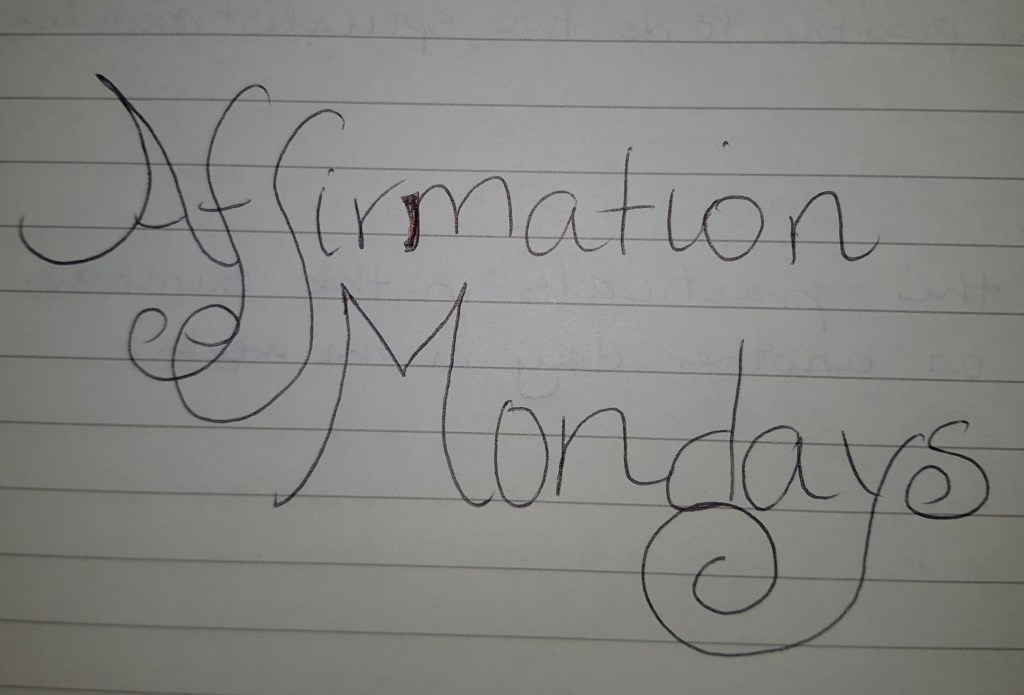 Affirmation
Mondays